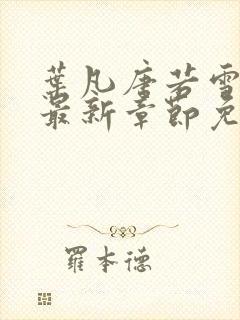 葉凡唐若雪
最新章節免
羅本德